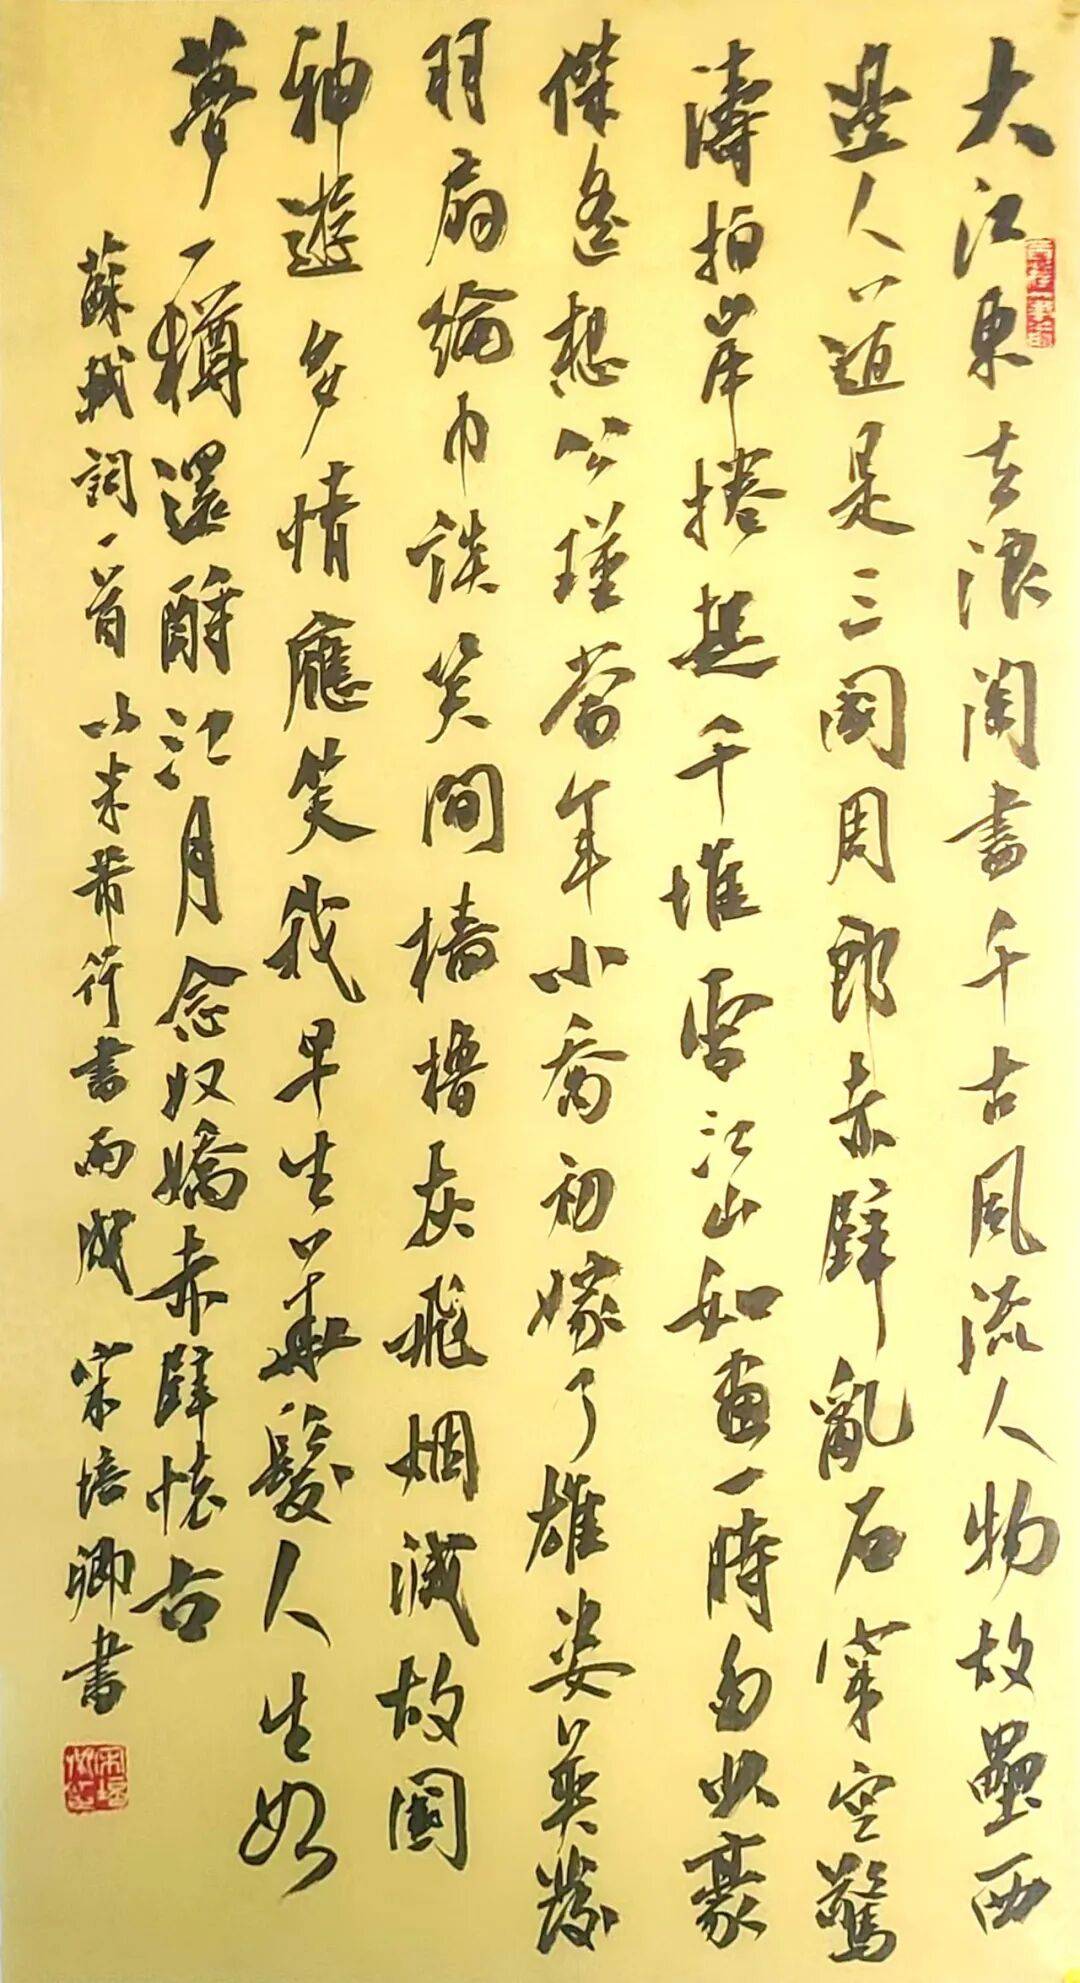 大江東去浪淘盡千古風流人物故壘西
邊人道是三國周郎赤壁亂石穿空驚
濤拍岸捲起千堆雪江山如畫一時多少豪
傑遙想公瑾當年小喬初嫁了雄姿英發
羽扇綸巾談笑間檣櫓灰飛煙滅故國
神遊多情應笑我早生華髮人生如
夢一樽還酹江月念奴嬌赤壁懷古
蘇軾詞一首以米芾行書而成宋培卿書